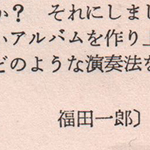 か？　それにしまし
いアルバムを作り」
どのような演奏法を
福田一郎〕